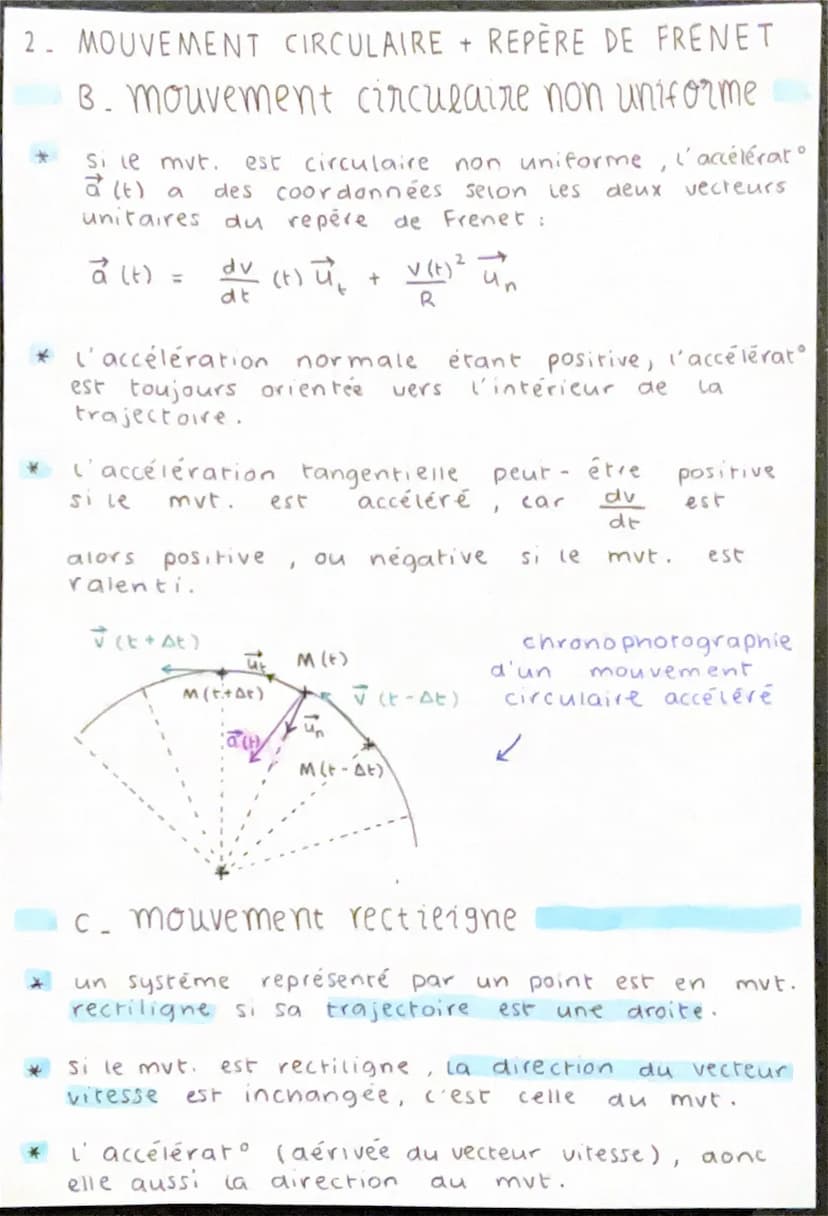 2. MOUVEMENT CIRCULAIRE + REPÈRE DE FRENET
B. mouvement circulaire non uniforme
* Si le mvt. est circulaire non uniforme, l'accélérat°
a⃗ (t) a des coordonnées selon les deux vecteurs
unitaires du repère de Frenet :
a⃗ (t) = dv/dt (t) u⃗ₜ + v(t)²/R u⃗ₙ
* L'accélération normale étant positive, l'accélérat°
est toujours orientée vers l'intérieur de la
trajectoire.
* L'accélération tangentielle peut-être positive
si le mvt. est accéléré, car dv/dt est
alors positive, ou négative si le mvt. est
ralenti.
v⃗ (t + Δt)
u⃗ₜ
M(t)
M(t+Δt)
v⃗ (t - Δt)
a⃗(t)
u⃗ₙ
M(t - Δt)
chronophotographie
d'un mouvement
circulaire accéléré
C. mouvement rectiligne
* un système représenté par un point est en mvt.
rectiligne si sa trajectoire est une droite.
* Si le mvt. est rectiligne, la direction du vecteur
vitesse est inchangée, c'est celle du mvt.
* L'accélérat° (dérivée du vecteur vitesse), donc
elle aussi la direction du mvt.